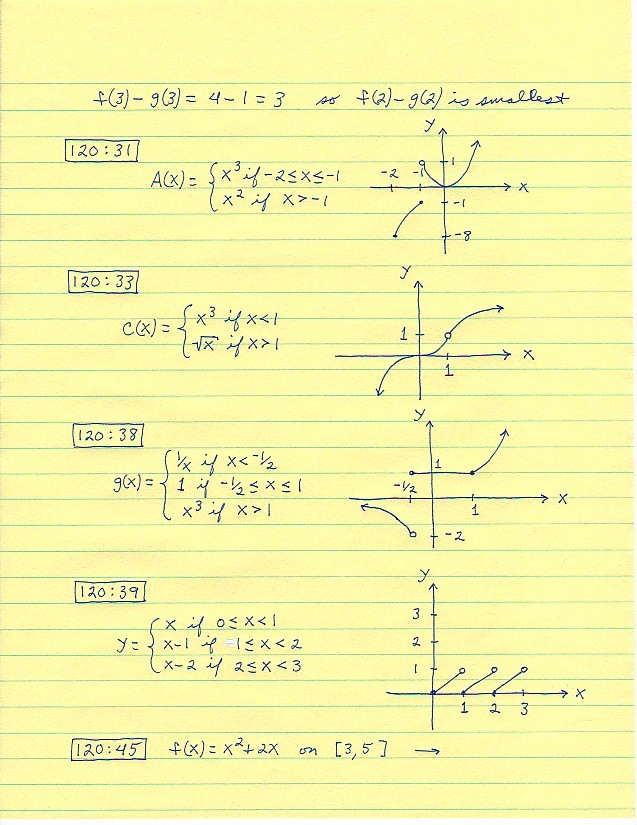 f(3) - g(3) = 4 - 1 = 3 so f(2) - g(2) is smallest
120:31
A(x) = { x³ if -2 ≤ x ≤ -1
x² if x > -1
y
1
-2 -1 x
-1
-8
120:33
C(x) = { x³ if x < 1
√x if x > 1
y
1
x
1
120:38
g(x) = { 1/x if x < -1/2
1 if -1/2 ≤ x ≤ 1
x³ if x > 1
y
1
-1/2 x
1
-2
120:39
y = { x if 0 ≤ x < 1
x-1 if 1 ≤ x < 2
x-2 if 2 ≤ x < 3
y
3
2
1
x
1 2 3
120:45 f(x) = x² + 2x on [3, 5] →